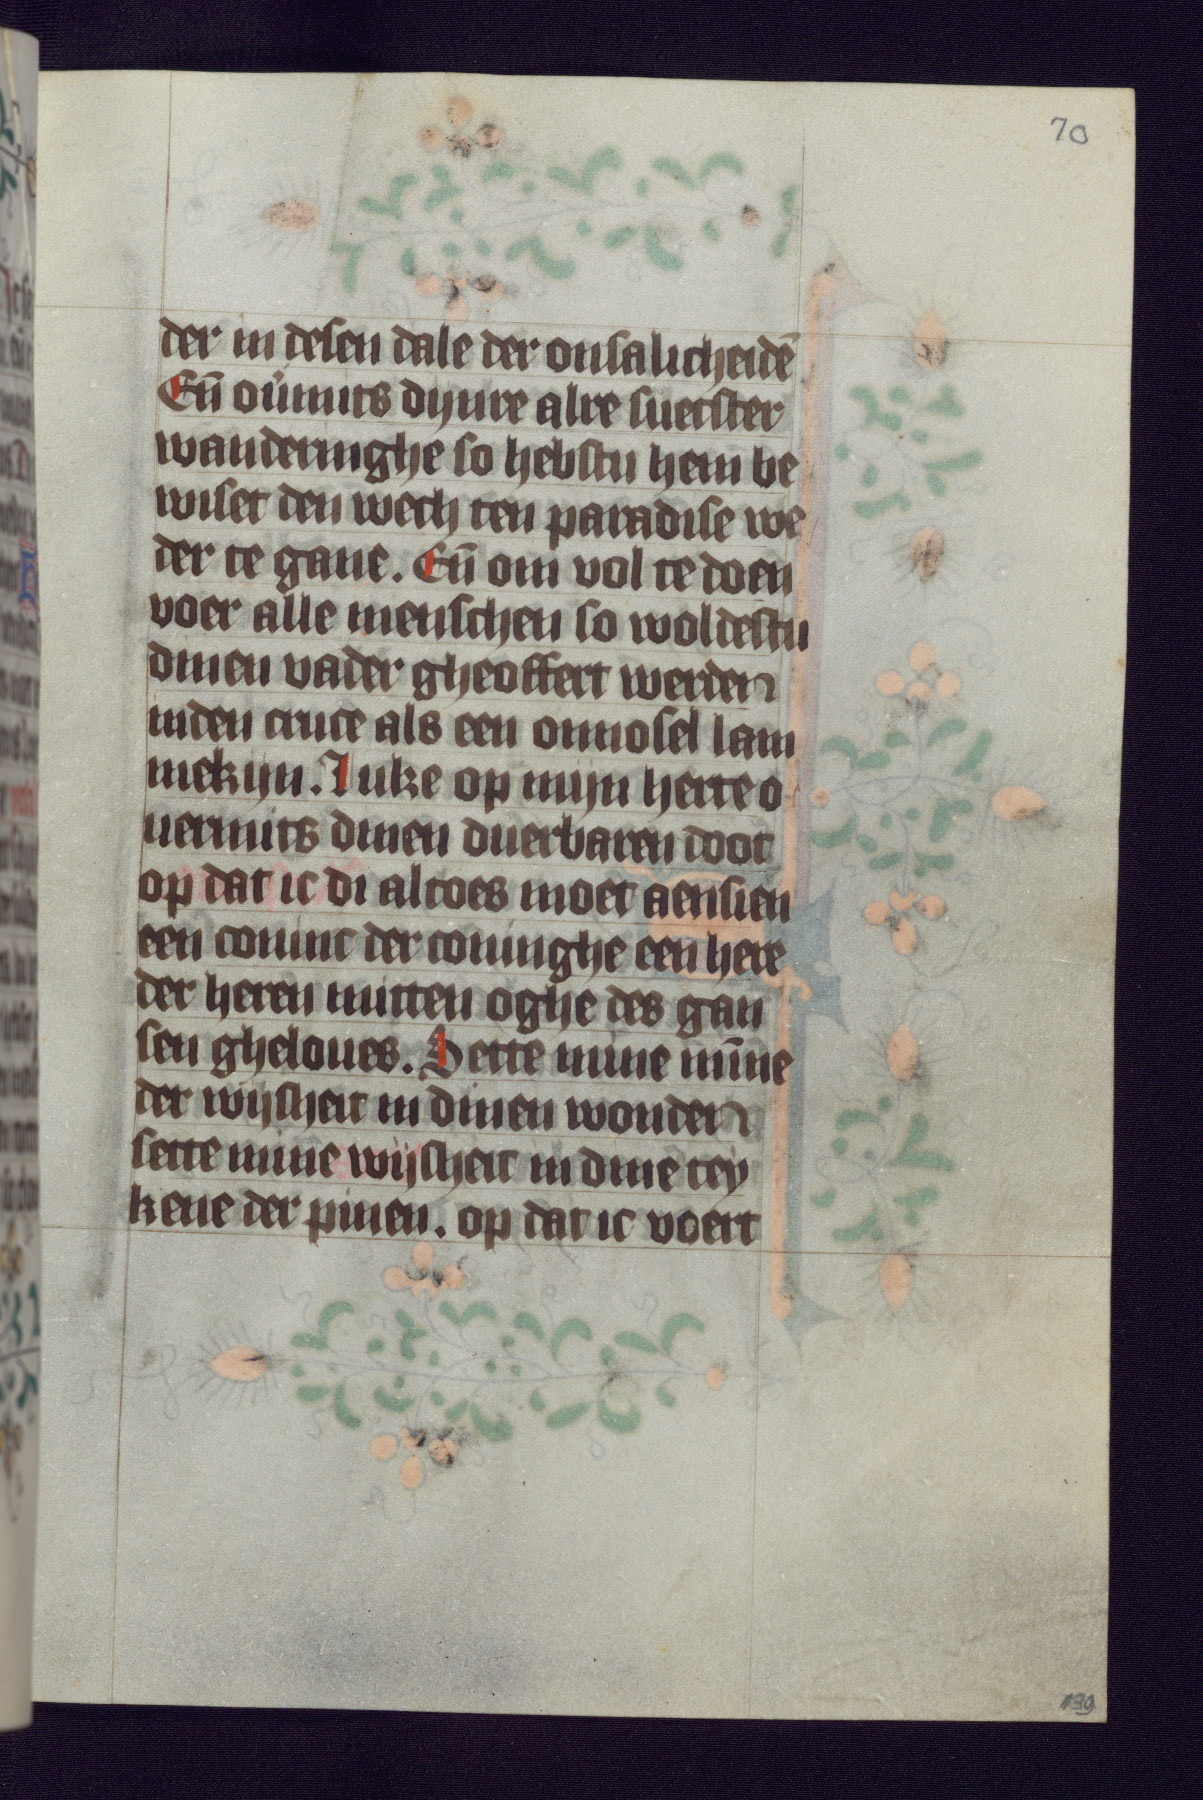 70
der in desen dale der onsalicheidē
Eñ ou̇mits dijnre alre suetster
wanderinghe so hebstu hem be
wiset den wech ten paradise we
der te gane. Eñ om vol te doen
voer alle menschen so woldestu
dinen vader gheoffert werden
inden cruce als een onnosel lam
mekijn. Iuke op mijn herte o
uermits dinen duerbaren doot
op dat ic di altoes moet aensien
een coninc der coninghe een here
der heren mitten oghe des gan
sen gheloues. Sette mine mīne
der wijsheit in dinen wonden
sette mine wijsheit in dine tey
kene der pinen. op dat ic voert
139